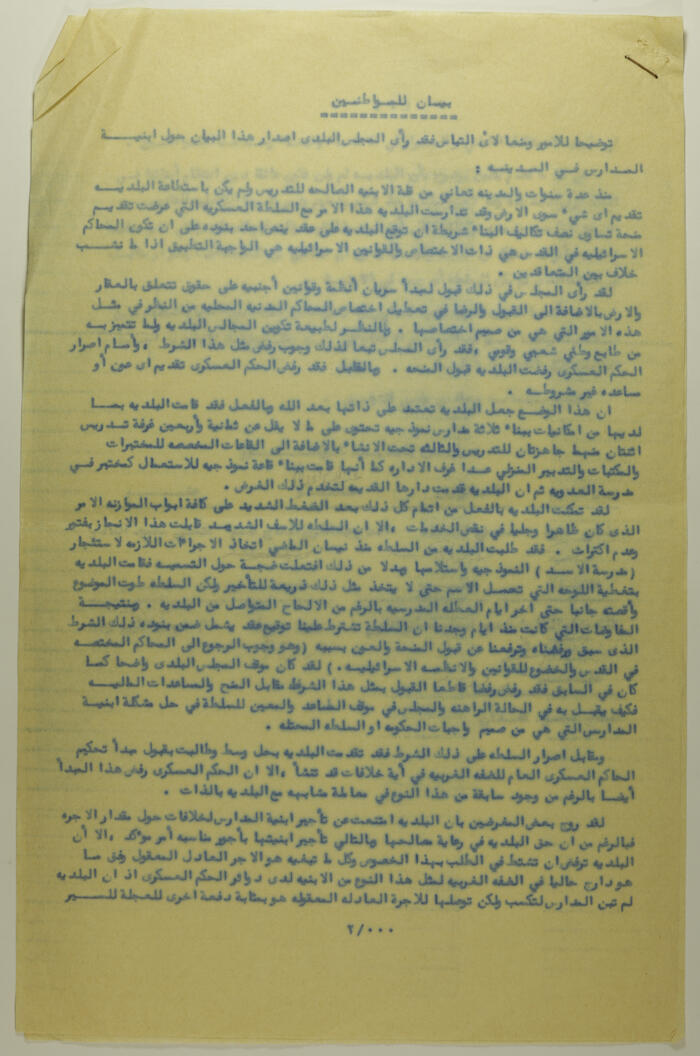 بيان للمواطنين
توضيحا للامور ومنعا لائ التباس فقد رأى المجلس البلدى اصدار هذا البيان حول ابنيـــة
المدارس في المدينه :
منذ عدة سنوات والمدينه تعاني من قلة الابنيه الصالحه للتدريس ولم يكن باستطاعة البلديــه
تقديم اى شيء سوى الارض وقد تدارست البلديه هذا الامر مع السلطة العسكريه التي عرضت تقديــم
منحة تساوى نصف تكاليف البناء شريطة ان توقع البلديه على عقد ينص احد بنوده على ان تكون المحاكم
الاسرائيليه في القدس هي ذات الاختصاص والقوانين الاسرائيليه هي الواجبة التطبيق اذا ما نشــب
خلاف بين المتعاقدين .
لقد رأى المجلس في ذلك قبول لمبدأ سريان أنظمة وقوانين أجنبيه على حقوق تتعلق بالعقار
والارض بالاضافة الى القبول والرضا في تعطيل اختصاص المحاكم المدنيه المحليه من النظر في مثــل
هذه الامور التي هي من صميم اختصاصها . وبالنظر لطبيعة تكوين المجالس البلديه وما تتميز بــه
من طابع وطني شعبي وقومي ، فقد رأى المجلس تبعا لذلك وجوب رفض مثل هذا الشرط ، وأمام اصرار
الحكم العسكرى رفضت البلديه قبول المنحه . وبالمقابل فقد رفض الحكم العسكرى تقديم اى عون أو
مساعده غير مشروطه .
ان هذا الوضع جعل البلديه تعتمد على ذاتها بعد الله وبالفعل فقد قامت البلديه بمــا
لديها من امكانيات ببناء ثلاثة مدارس نموذجيه تحتوى على ما لا يقل عن ثمانية وأربعين غرفة تدريس
اثنتان منها جاهزتان للتدريس والثالثه تحت الانشاء بالاضافة الى القاعات المخصصه للمختبرات
والمكتبات والتدبير المنزلي عدا غرف الاداره كما أنها قامت ببناء قاعة نموذجيه للاستعمال كمختبر فــي
مدرسة العدويه ثم ان البلديه قدمت دارها القديمه لتخدم ذلك الغرض .
لقد تمكنت البلديه بالفعل من اتمام كل ذلك بعد الضغط الشديد على كافة ابواب الموازنه الامر
الذى كان ظاهرا وجليا في نقص الخدمات ، الا ان السلطه للاسف الشديــد قابلت هذا الانجاز بفتور
وعدم اكتراث . فقد طلبت البلديه من السلطه منذ نيسان الماضي اتخاذ الاجراءات اللازمه لاستئجار
( مدرسة الاســد ) النموذجيه واستلامها وبدلا من ذلك افتعلت ضجة حول التسميه فقامت البلديه
بتغطية اللوحه التي تحمل الاسم حتى لا يتخذ مثل ذلك ذريعة للتأخير ولكن السلطه طوت الموضوع
وأقصته جانبا حتى اخر ايام العطله المدرسيه بالرغم من الالحاح المتواصل من البلديه . ونتيجــة
المفاوضات التي كانت منذ ايام وجدنا ان السلطة تشترط علينا توقيع عقد يشمل ضمن بنوده ذلك الشرط
الذى سبق ورفضناه وترفعنا عن قبول المنحة والعون بسببه ( وهو وجوب الرجوع الى المحاكم المختصه
في القدس والخضوع للقوانين والانظمه الاسرائيليه . ) لقد كان موقف المجلس البلدى واضحا كمــا
كان في السابق فقد رفض رفضا قاطعا القبول بمثل هذا الشرط مقابل المنح والمساعدات الماليــه
فكيف يقبــل به في الحالة الراهنه والمجلس في موقف المساعد والمعين للسلطة في حل مشكلة ابنيــة
المدارس التي هي من صميم واجبات الحكومه او السلطه المحتله .
ومقابل اصرار السلطه على ذلك الشرط فقد تقدمت البلديه بحل وسط وطالبت بقبول مبدأ تحكيم
الحاكم العسكرى العام للضفه الغربيه في أية خلافات قد تنشأ ، الا ان الحكم العسكرى رفض هذا المبدأ
أيضا بالرغم من وجود سابقة من هذا النوع في معاملة مشابهه مع البلديه بالذات .
لقد روج بعض المغرضين بان البلديه امتنعت عن تأجير ابنية المدارس لخلافات حول مقدار الاجره
فبالرغم من ان حق البلديه في رعاية مصالحها وبالتالي تأجير ابنيتها بأجور مناسبه أمر مؤكد ، الا أن
البلديه ترفض ان تشتط في الطلب بهذا الخصوص وكل ما تبغيه هو الاجر العادل المعقول وفق مــا
هو دارج حاليا في الضفه الغربيه لمثل هذا النوع من الابنيه لدى دوائر الحكم العسكرى اذ ان البلديه
لم تبن المدارس لتكسب ولكن توصلها للاجرة العادله المعقوله هو بمثابة دفعة اخرى للعجلة للســير
٢/٠٠٠